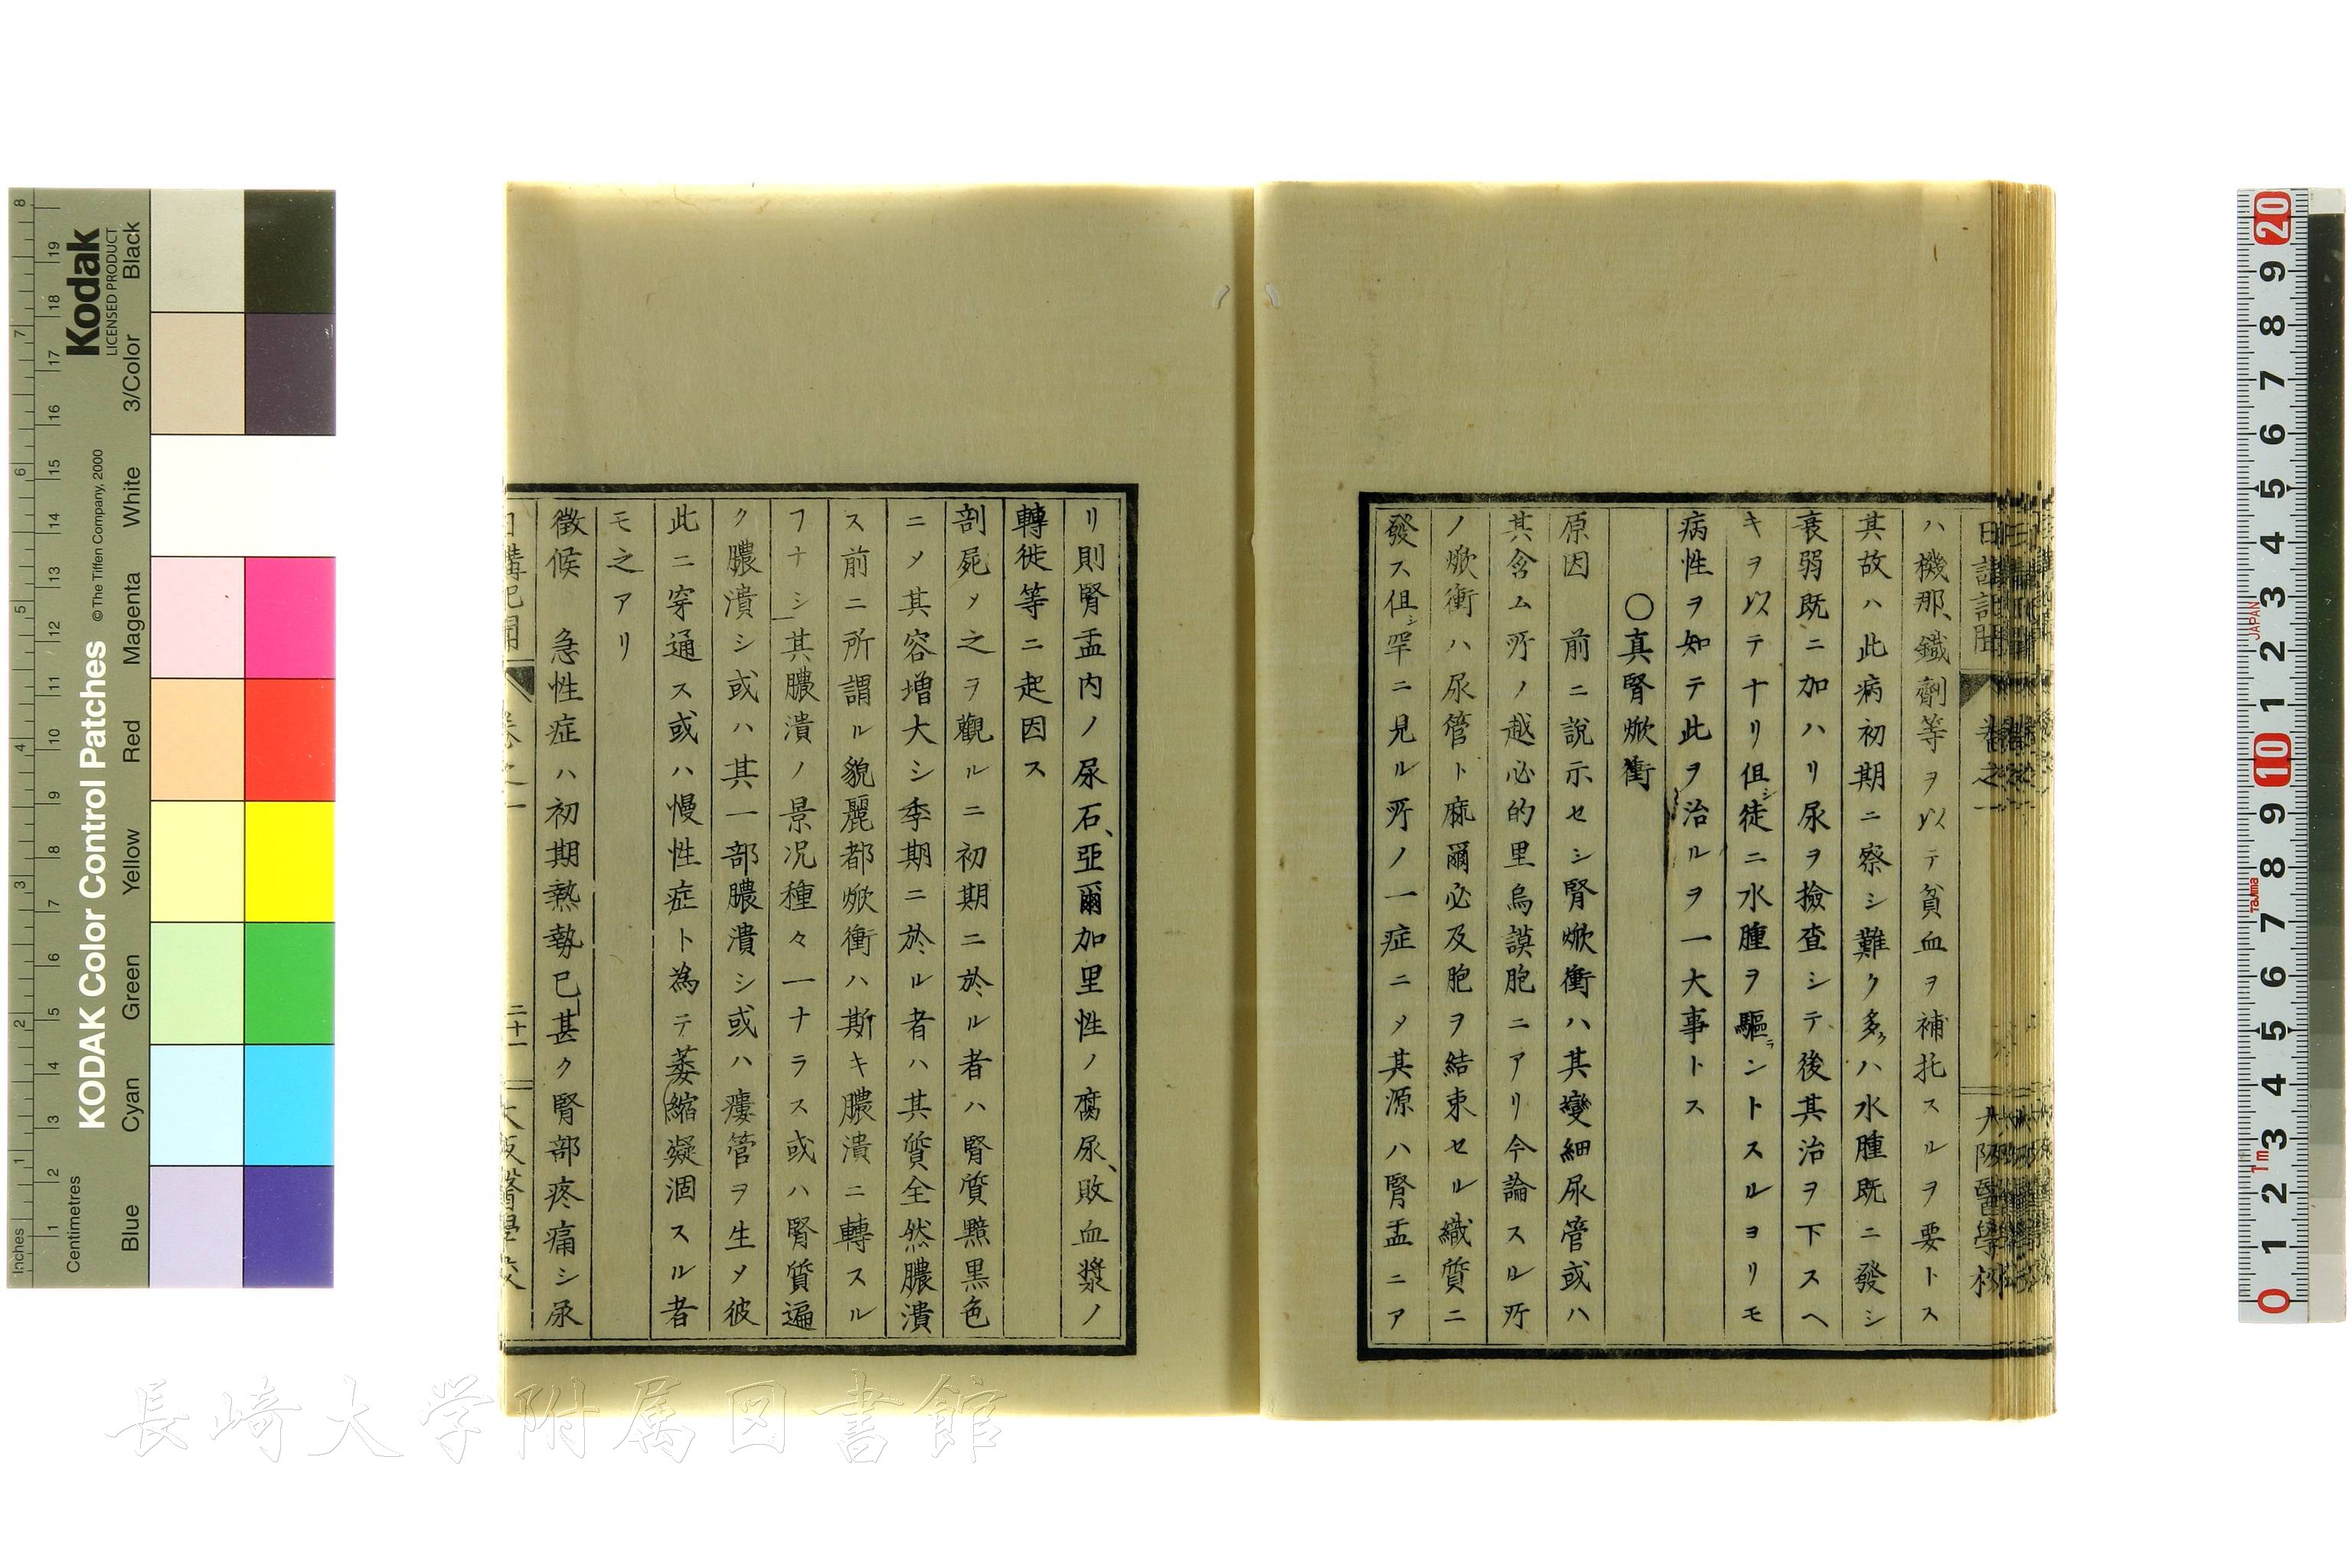 日講記聞 卷之一 大阪醫學校
ハ機那、鐵劑等ヲ以テ貧血ヲ補托スルヲ要トス
其故ハ此病初期ニ察シ難ク多クハ水腫既ニ發シ
衰弱既ニ加ハリ尿ヲ撿査シテ後其治ヲ下スヘ
キヲ以テナリ但シ徒ニ水腫ヲ驅ラントスルヨリモ
病性ヲ知テ此ヲ治ルヲ一大事トス
○真腎焮衝
原因 前ニ説示セシ腎焮衝ハ其變細尿管或ハ
其含ム所ノ越必的里烏謨胞ニアリ今論スル所
ノ焮衝ハ尿管ト麻爾必及胞ヲ結束セル織質ニ
發ス但シ罕ニ見ル所ノ一症ニメ其源ハ腎盂ニア
リ則腎盂内ノ尿石、亞爾加里性ノ腐尿、敗血漿ノ
轉徙等ニ起因ス
剖屍メ之ヲ觀ルニ初期ニ於ル者ハ腎質黯黒色
ニメ其容増大シ季期ニ於ル者ハ其質全然膿潰
ス前ニ所謂ル貌麗都焮衝ハ斯キ膿潰ニ轉スル
フナシ其膿潰ノ景况種々一ナラス或ハ腎質遍
ク膿潰シ或ハ其一部膿潰シ或ハ瘻管ヲ生メ彼
此ニ穿通ス或ハ慢性症ト為テ萎縮凝涸スル者
モ之アリ
徴候 急性症ハ初期熱勢已甚ク腎部疼痛シ尿
日講記聞 卷之一 二十一 大阪醫學校
長崎大学附属図書館
Kodak
LICENSED PRODUCT
KODAK Color Control Patches
© The Tiffen Company, 2000
Inches
Centimetres
Blue Cyan Green Yellow Red Magenta White 3/Color Black
1 2 3 4 5 6 7 8
1 2 3 4 5 6 7 8 9 10 11 12 13 14 15 16 17 18 19
0 1 2 3 4 5 6 7 8 9 10 1 2 3 4 5 6 7 8 9 20
1m
Tajima
JAPAN